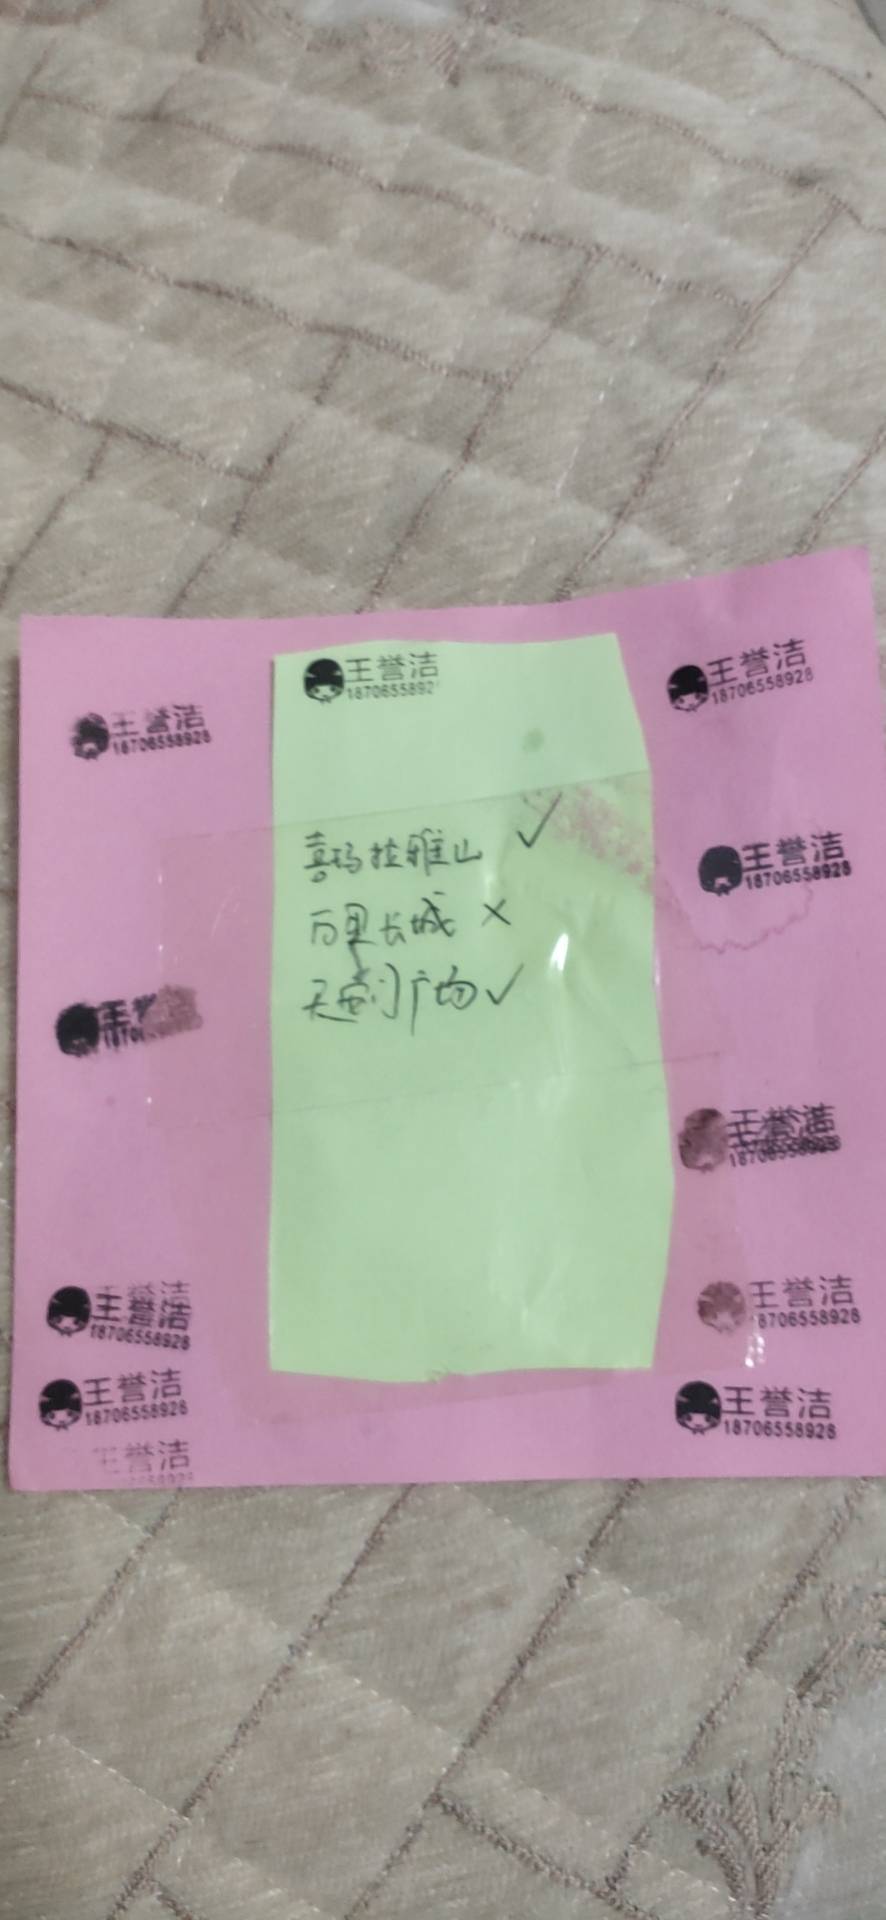 王誉洁
1870655892
王誉洁
18706558928
王誉洁
18706558928
喜玛拉雅山 ✓
王誉洁
18706558928
万里长城 ×
天安门广场 ✓
王
1870
王誉洁
18706558928
王誉洁
18706558928
王誉洁
8706558928
王誉洁
18706558928
王誉洁
18706558928
王誉洁